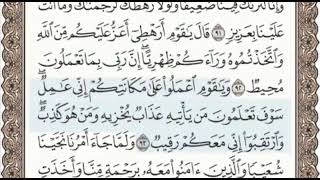 وَإِنَّا لَنَرَىٰكَ فِينَا ضَعِيفًا وَلَوْلَا رَهْطُكَ لَرَجَمْنَٰكَ وَمَا أَنتَ
عَلَيْنَا بِعَزِيزٍ ﴿٩١﴾ قَالَ يَٰقَوْمِ أَرَهْطِىٓ أَعَزُّ عَلَيْكُم مِّنَ ٱللَّهِ
وَٱتَّخَذْتُمُوهُ وَرَآءَكُمْ ظِهْرِيًّا ۖ إِنَّ رَبِّى بِمَا تَعْمَلُونَ
مُحِيطٌ ﴿٩٢﴾ وَيَٰقَوْمِ ٱعْمَلُوا۟ عَلَىٰ مَكَانَتِكُمْ إِنِّى عَٰمِلٌ ۖ
سَوْفَ تَعْلَمُونَ مَن يَأْتِيهِ عَذَابٌ يُخْزِيهِ وَمَنْ هُوَ كَٰذِبٌ ۖ
وَٱرْتَقِبُوٓا۟ إِنِّى مَعَكُمْ رَقِيبٌ ﴿٩٣﴾ وَلَمَّا جَآءَ أَمْرُنَا نَجَّيْنَا
شُعَيْبًا وَٱلَّذِينَ ءَامَنُوا۟ مَعَهُۥ بِرَحْمَةٍ مِّنَّا وَأَخَذَتِ